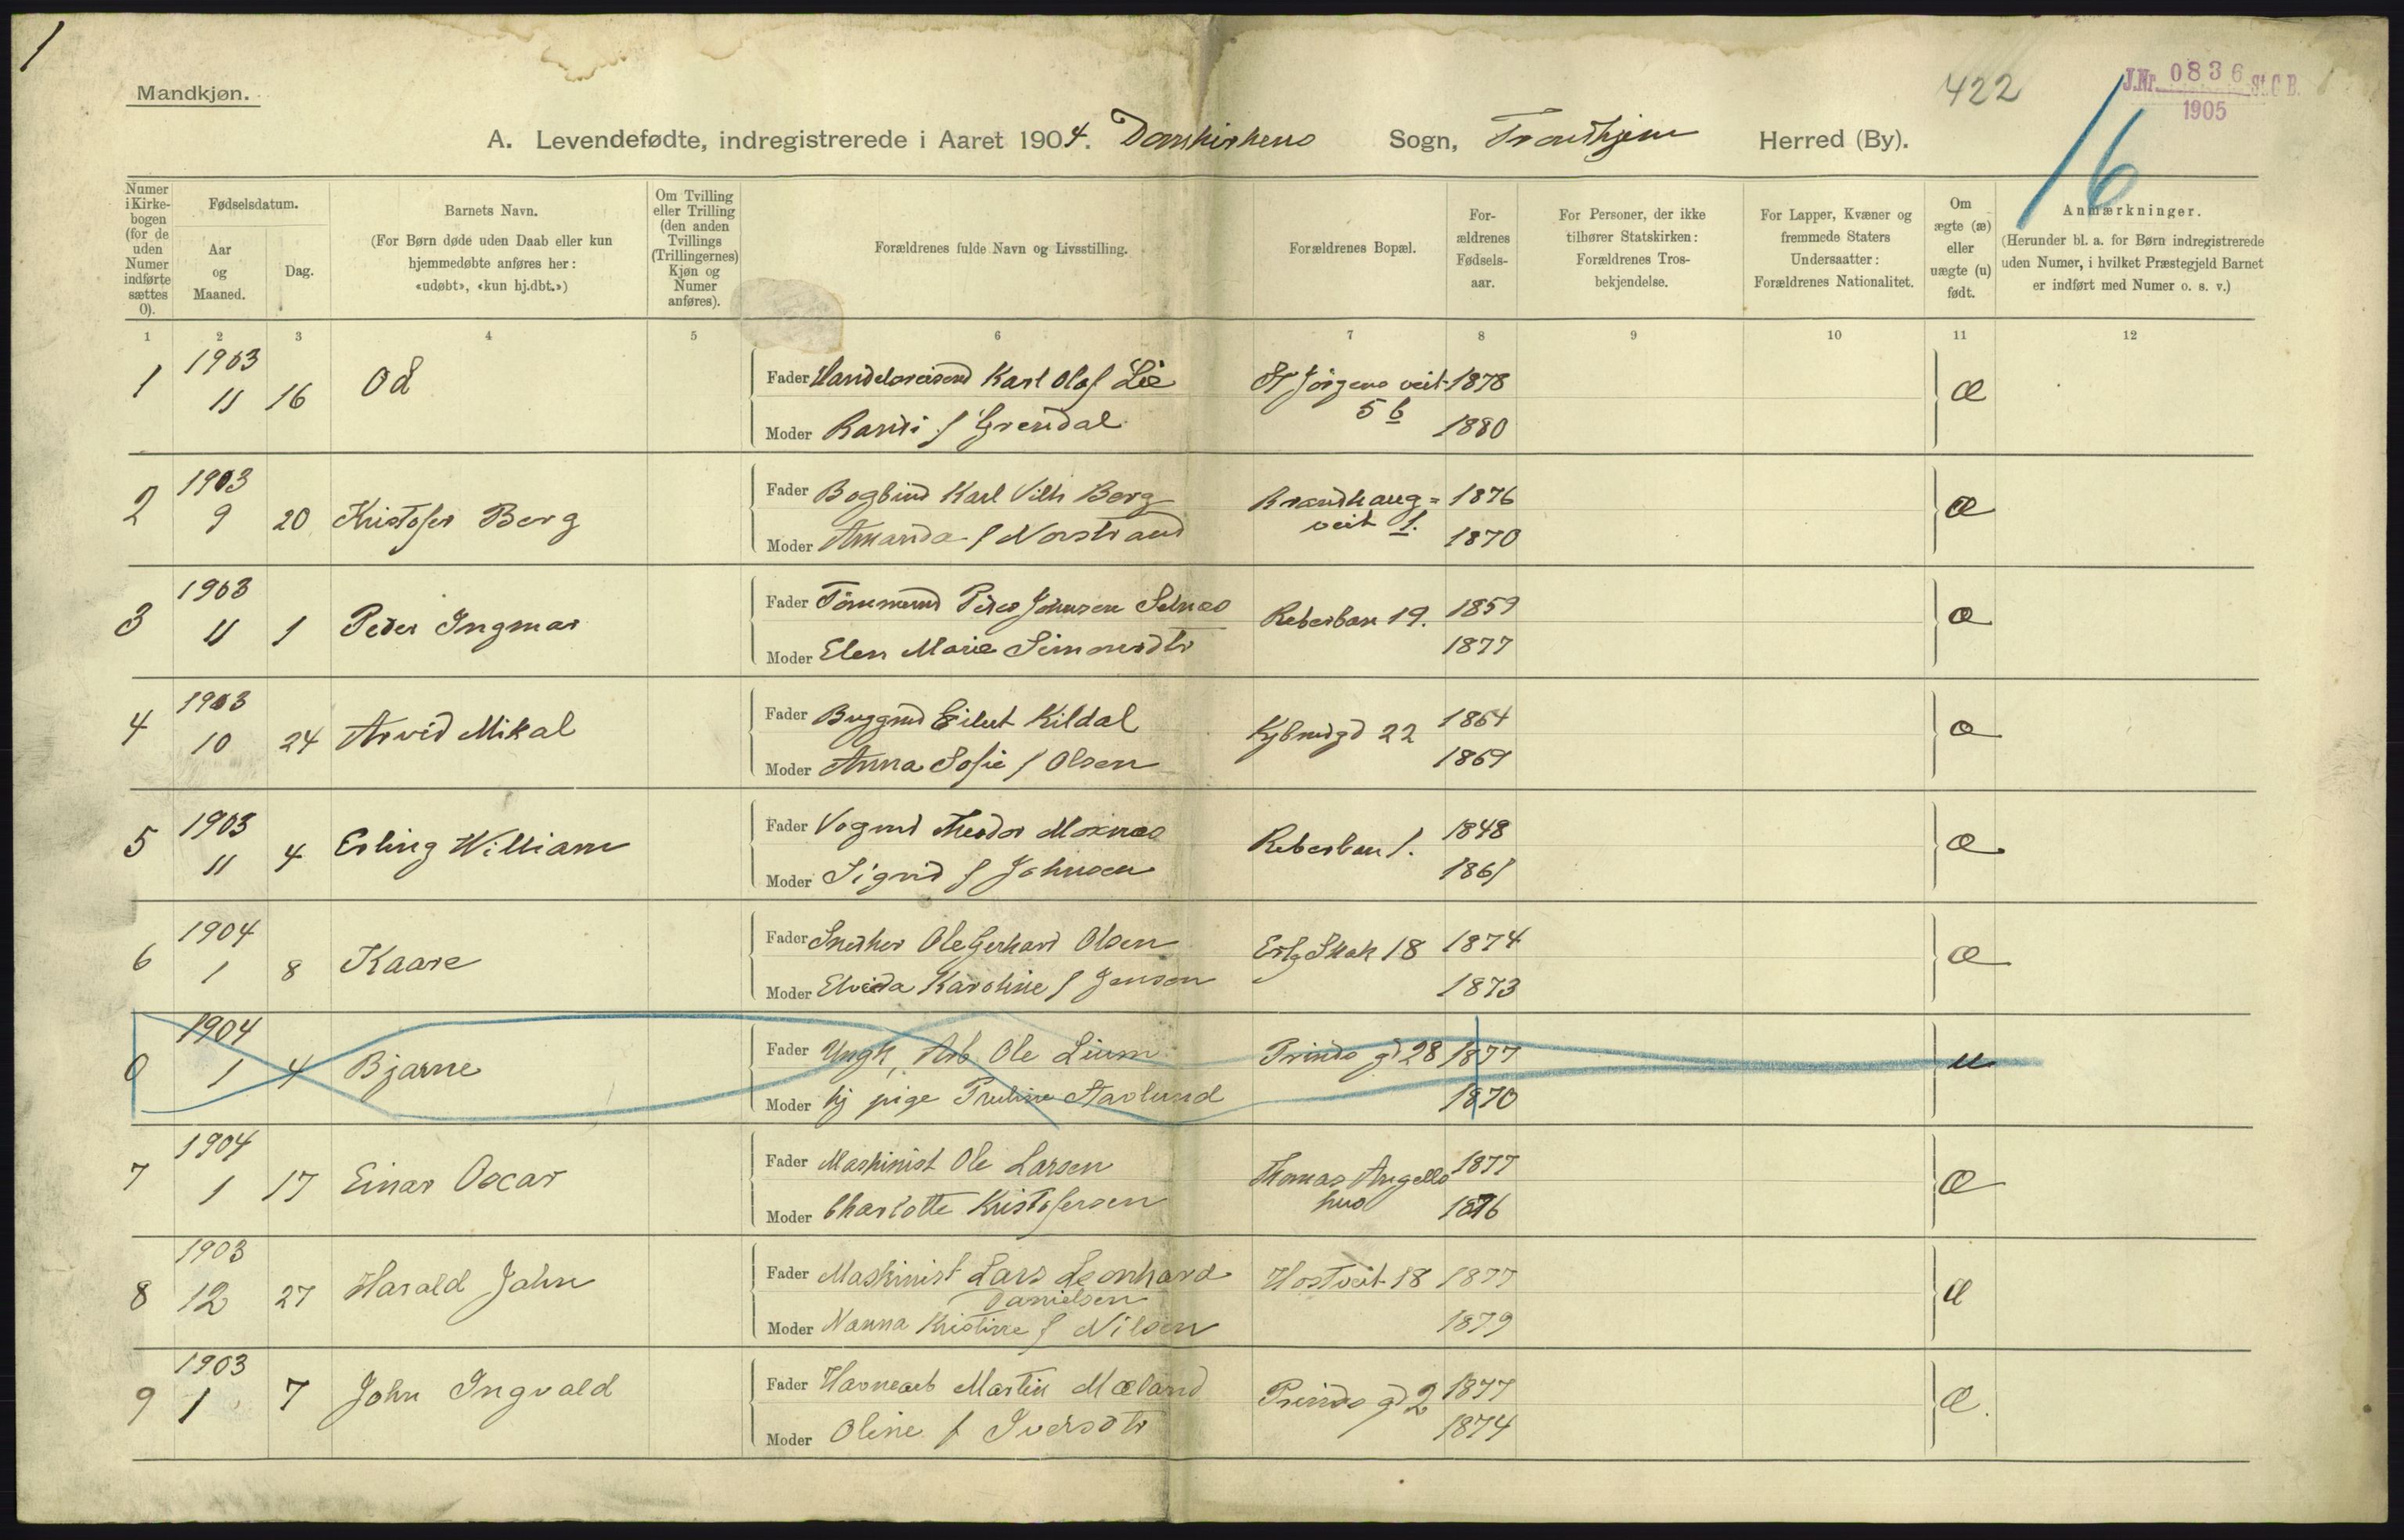 1
Mandkjøn.
422
J.Nr. 0836 St. C B.
1905
16
A. Levendefødte, indregistrerede i Aaret 1904. Domkirkens Sogn, Trondhjem Herred (By).
Numer i Kirke-bogen (for de uden Numer indførte sættes 0).
Fødselsdatum.
Aar og Maaned.
Dag.
Barnets Navn.
(For Børn døde uden Daab eller kun hjemmedøbte anføres her: «udøbt», «kun hj.dbt.»)
Om Tvilling eller Trilling (den anden Tvillings (Trillingernes) Kjøn og Numer anføres).
Forældrenes fulde Navn og Livsstilling.
Forældrenes Bopæl.
For-ældrenes Fødsels-aar.
For Personer, der ikke tilhører Statskirken: Forældrenes Tros-bekjendelse.
For Lapper, Kvæner og fremmede Staters Undersaatter: Forældrenes Nationalitet.
Om ægte (æ) eller uægte (u) født.
Anmærkninger.
(Herunder bl. a. for Børn indregistrerede uden Numer, i hvilket Præstegjeld Barnet er indført med Numer o. s. v.)
1 2 3 4 5 6 7 8 9 10 11 12
1 1903 11 16 Od
Fader Handelsreisend Karl Olaf Lie St Jörgens veit 5 b 1878 æ
Moder Randi f Grendal 1880
2 1903 9 20 Kristofer Berg
Fader Bogbind Karl Vilh Berg Brandhaug= veit 1. 1876 æ
Moder Amanda f Norstrand 1870
3 1903 11 1 Peder Ingmar
Fader Tömmermd Peder Johnsen Selnæs Reberban 19. 1859 æ
Moder Elen Marie Simonsdtr 1877
4 1903 10 24 Arvid Mikal
Fader Byggmd Eilert Kildal Kjbmdgd 22 1864 æ
Moder Anna Sofie f Olsen 1869
5 1903 11 4 Erling William
Fader Vognmd Theodor Moxnæs Reberban 1. 1848 æ
Moder Sigrid f Johnsen 1861
6 1904 1 8 Kaare
Fader Snedker Ole Gerhard Olsen Erlg Skak 18 1874 æ
Moder Elvida Karoline f Jensen 1873
0 1904 1 4 Bjarne
Fader Ungk, Arb Ole Lium Prinds gd 28 1877 u
Moder hj pige Pauline Stavlund 1870
7 1904 1 17 Einar Oscar
Fader Maskinist Ole Larsen Thomas Angells hus 1877 æ
Moder Charlotte Kristofersen 1876
8 1903 12 27 Harald John
Fader Maskinist Lars Leonhard Danielsen Hostveit 18 1877 æ
Moder Nanna Kristine f Nilsen 1879
9 1903 1 7 John Ingvald
Fader Havnearb Martin Mæland Prinds gd 2 1877 æ
Moder Oline f Iversdtr 1874